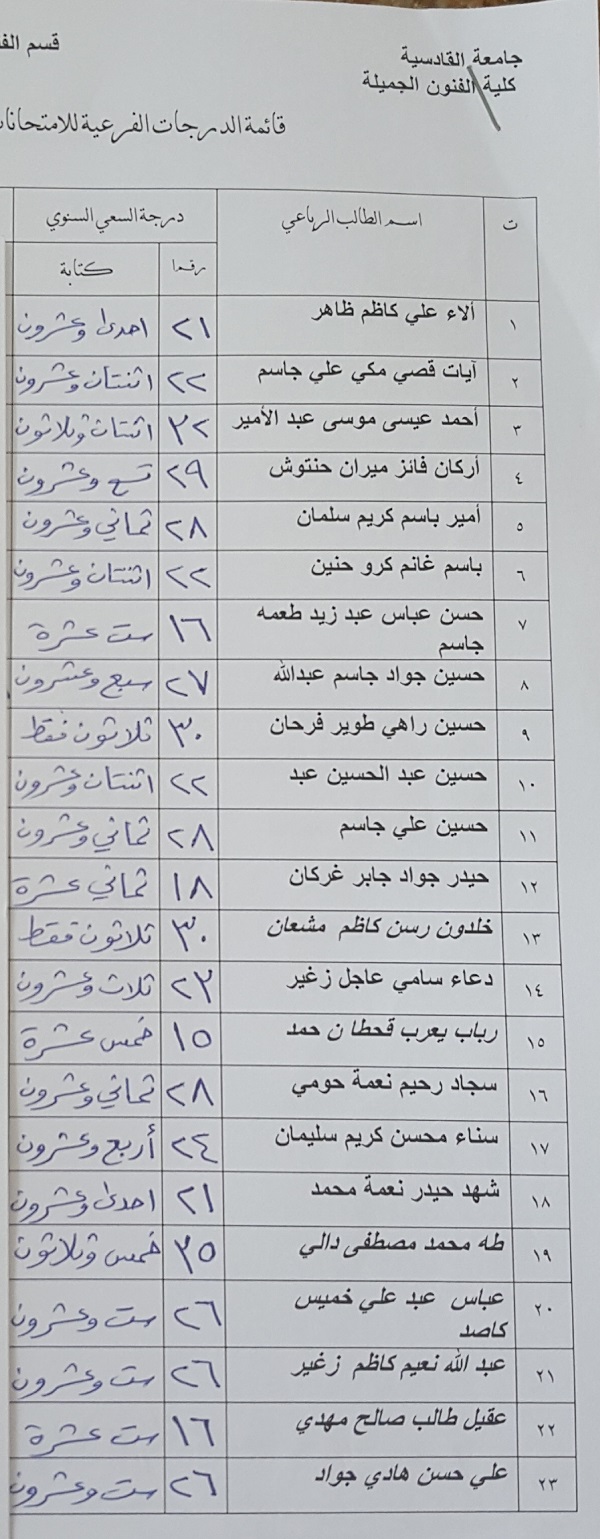 جامعة القادسية
كلية الفنون الجميلة
قسم
قائمة الدرجات الفرعية للامتحانات
ت اسم الطالب الرباعي درجة السعي السنوي
رقما كتابة
١ ألاء علي كاظم ظاهر ٢١ احدى وعشرون
٢ آيات قصي مكي علي جاسم ٢٢ اثنتان وعشرون
٣ أحمد عيسى موسى عبد الأمير ٣٢ اثنتان وثلاثون
٤ أركان فائز ميران حنتوش ٢٩ تسع وعشرون
٥ أمير باسم كريم سلمان ٢٨ ثماني وعشرون
٦ باسم غانم كرو حنين ٢٢ اثنتان وعشرون
٧ حسن عباس عبد زيد طعمه ١٦ ست عشرة
جاسم
٨ حسين جواد جاسم عبدالله ٢٧ سبع وعشرون
٩ حسين راهي طوير فرحان ٣٠ ثلاثون فقط
١٠ حسين عبد الحسين عبد ٢٢ اثنتان وعشرون
١١ حسين علي جاسم ٢٨ ثماني وعشرون
١٢ حيدر جواد جابر غركان ١٨ ثماني عشرة
١٣ خلدون رسن كاظم مشعان ٣٠ ثلاثون فقط
١٤ دعاء سامي عاجل زغير ٢٣ ثلاث وعشرون
١٥ رباب يعرب قحطا ن حمد ١٥ خمس عشرة
١٦ سجاد رحيم نعمة حومي ٢٨ ثماني وعشرون
١٧ سناء محسن كريم سليمان ٢٤ أربع وعشرون
١٨ شهد حيدر نعمة محمد ٢١ احدى وعشرون
١٩ طه محمد مصطفى دالي ٣٥ خمس وثلاثون
٢٠ عباس عبد علي خميس ٢٦ ست وعشرون
كاصد
٢١ عبد الله نعيم كاظم زغير ٢٦ ست وعشرون
٢٢ عقيل طالب صالح مهدي ١٦ ست عشرة
٢٣ علي حسن هادي جواد ٢٦ ست وعشرون